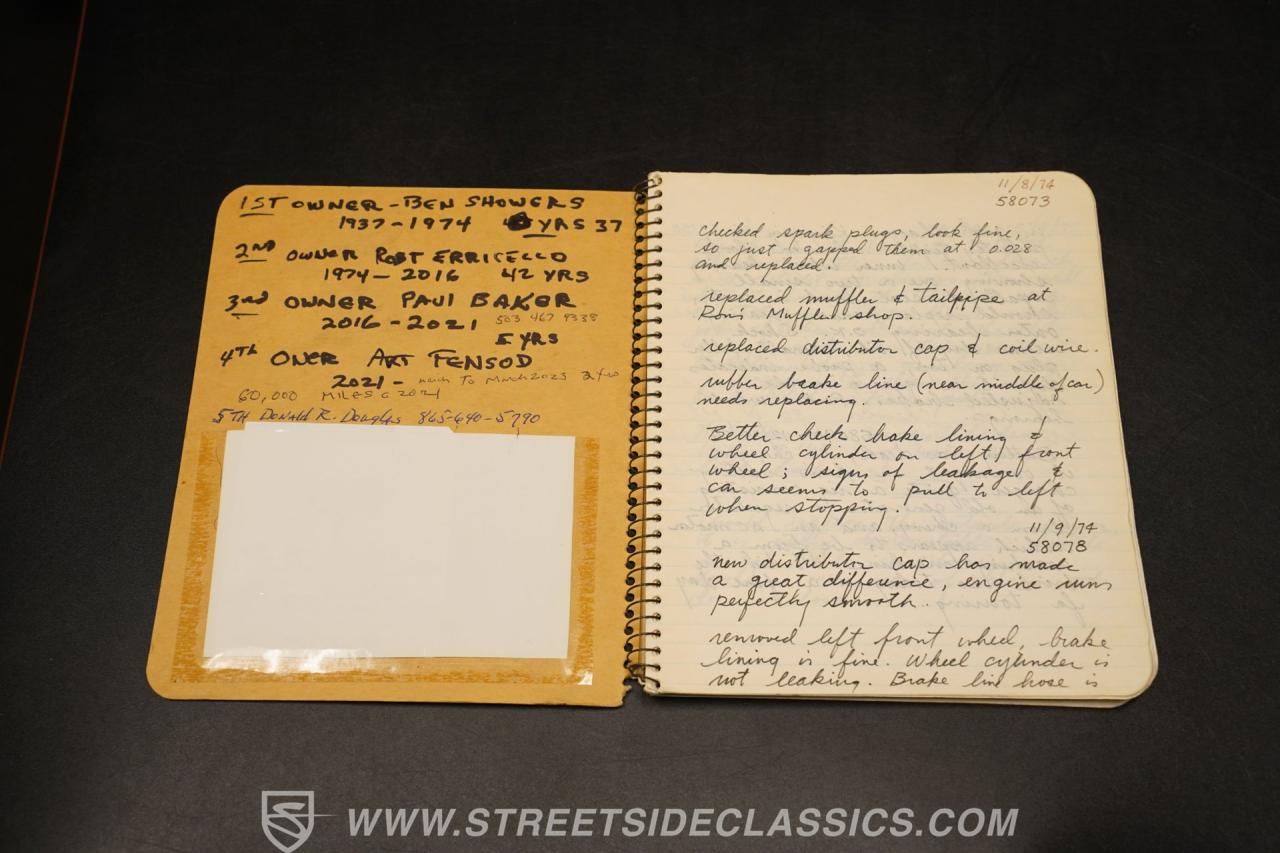 1ST OWNER - BEN SHOWERS
1937-1974 YRS 37
2ND OWNER ERRICELLO
1974-2016 42 YRS
3rd OWNER PAUL BAKER
2016-2021 503 467 9338
5 YRS
4TH ONER ART FENSOD
2021- To March 2023 2 yrs
60,000 MILES 2021
5TH Donald R. Douglas 865-640-5790
11/8/74
58073
checked spark plugs, look fine,
so just gapped them at 0.028
and replaced.
replaced muffler & tailpipe at
Ron's Muffler shop.
replaced distributor cap & coil wire.
rubber brake line (near middle of car)
needs replacing.
Better check brake lining &
wheel cylinder on left front
wheel; signs of leakage &
car seems to pull to left
when stopping.
11/9/74
58078
new distributor cap has made
a great difference, engine runs
perfectly smooth.
removed left front wheel, brake
lining is fine. Wheel cylinder is
not leaking. Brake line hose is
WWW.STREETSIDECLASSICS.COM